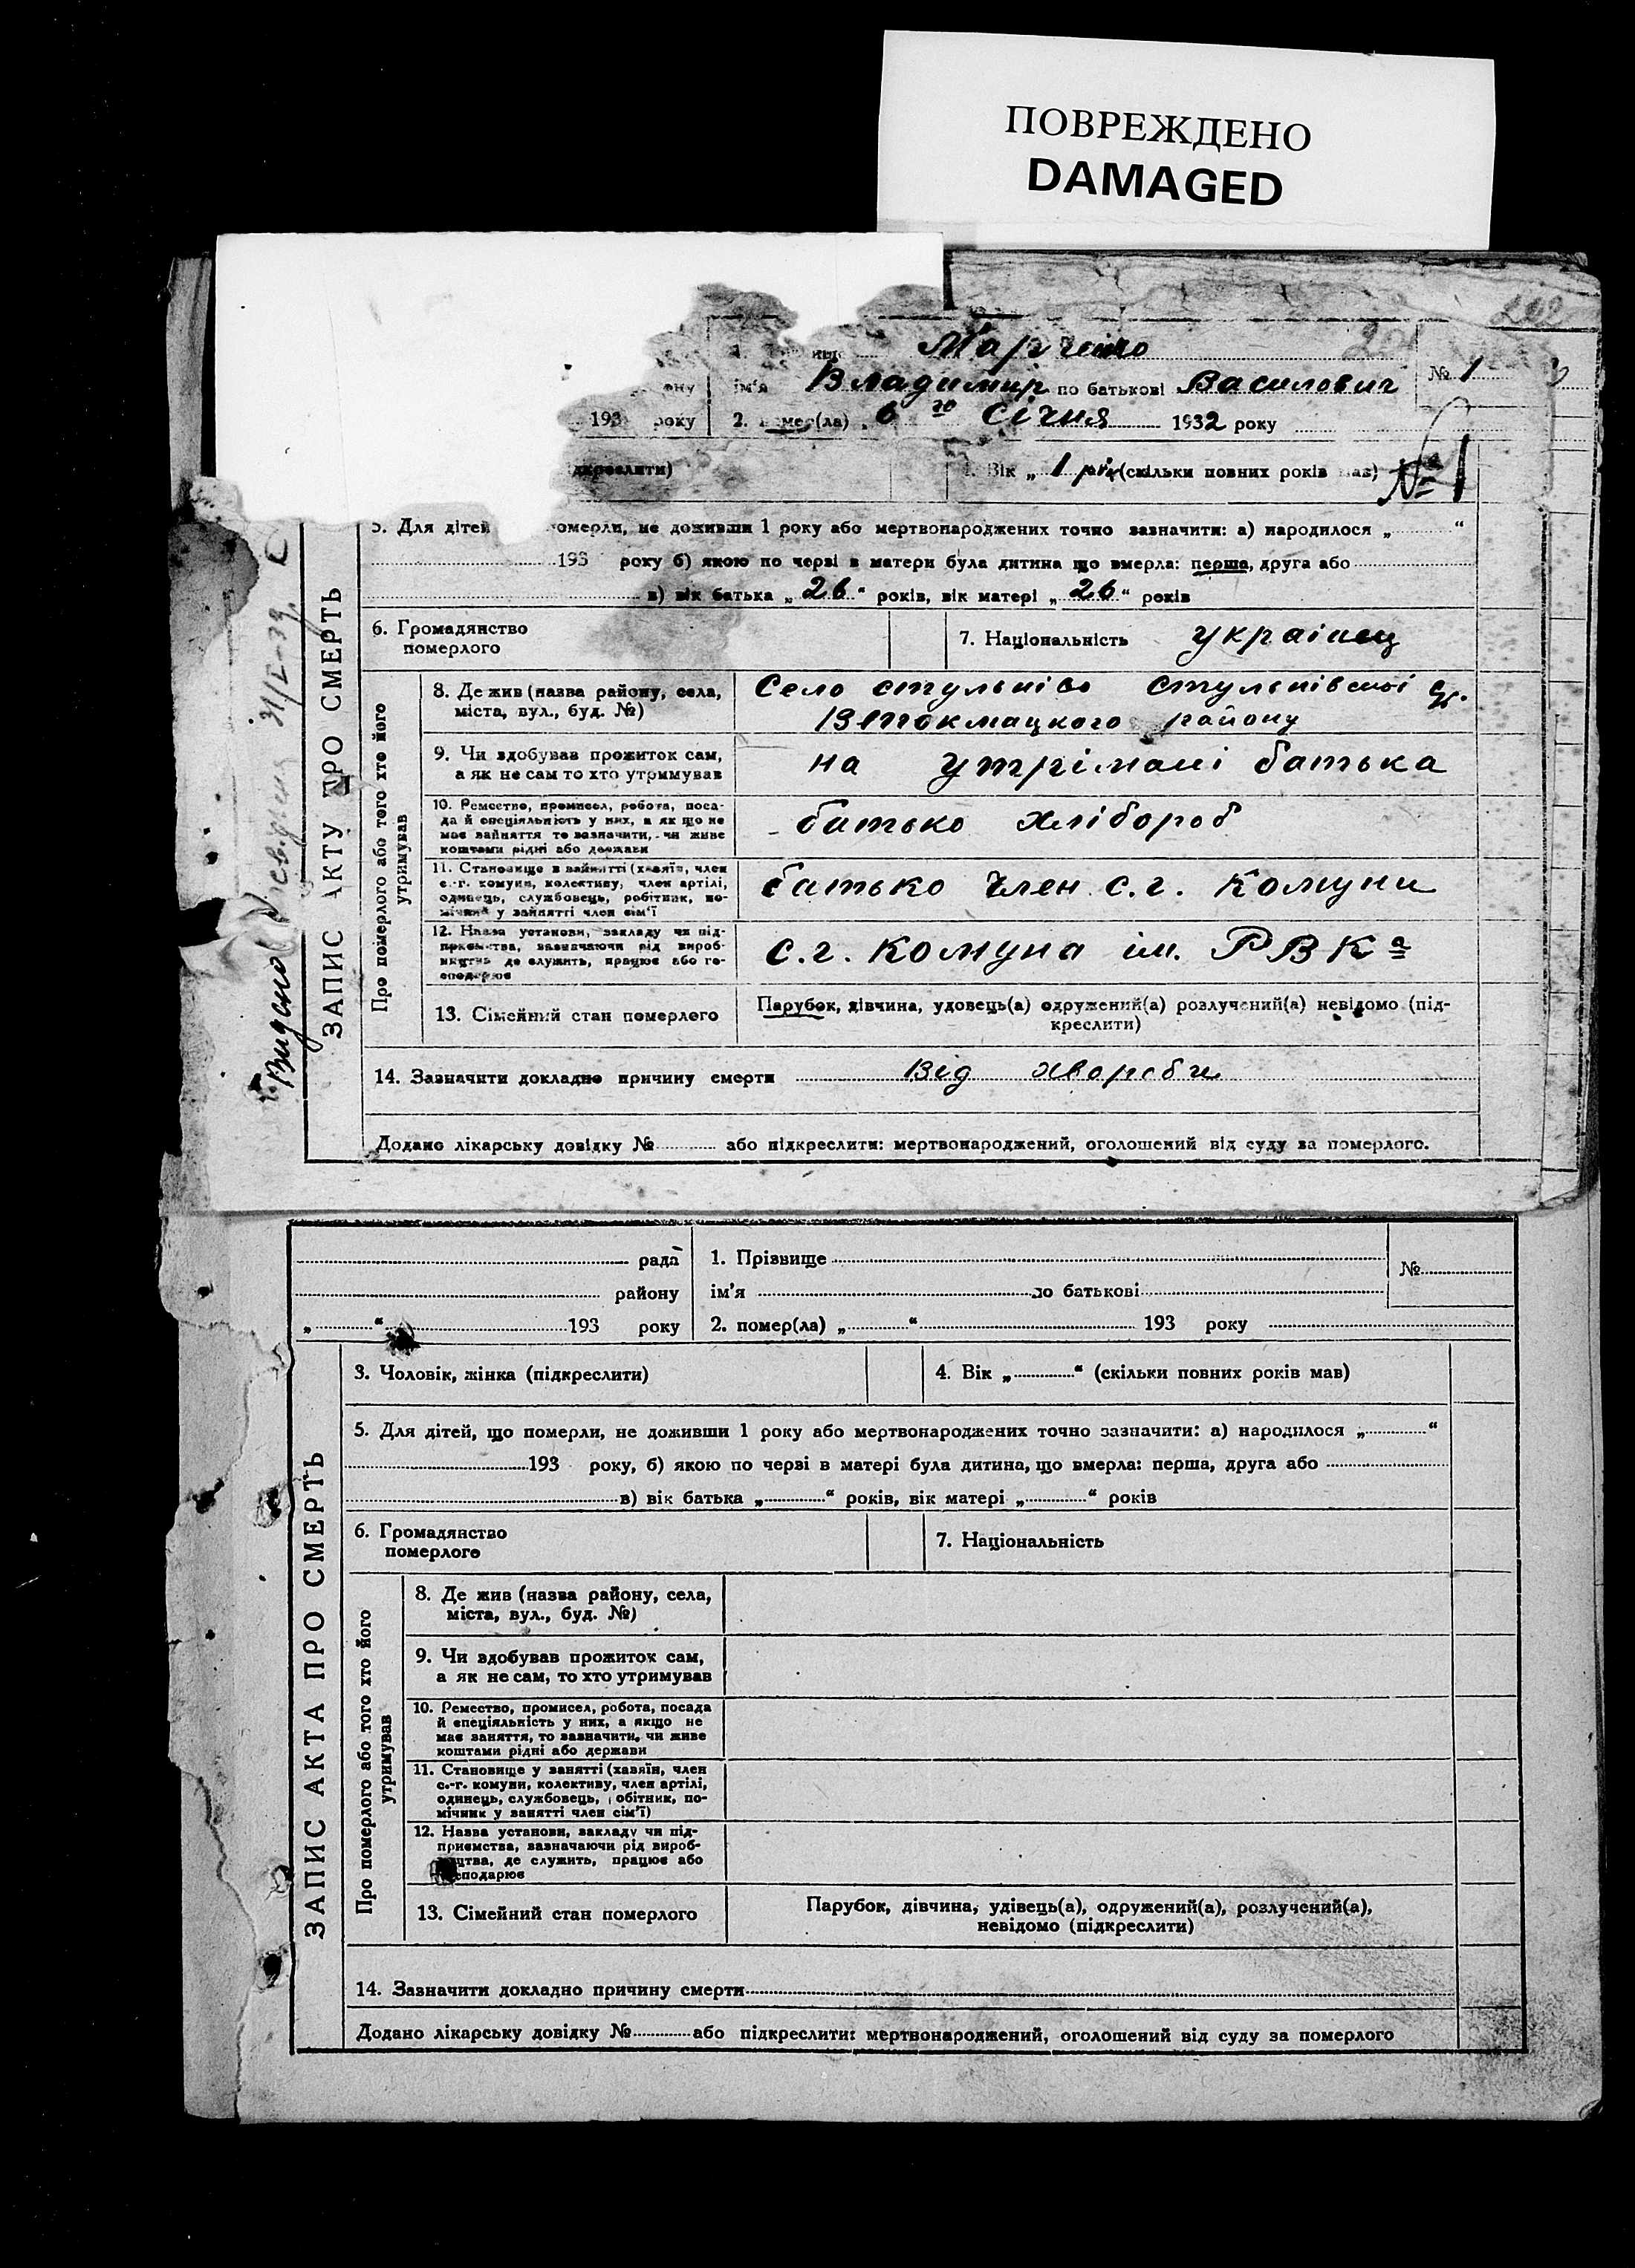 ПОВРЕЖДЕНО
DAMAGED
202
Марченко
№ 1
ім'я Владимир по батькові Василович
193 року 2. помер(ла) 6 го Січня 1932 року
підкреслити) 4. Вік „ 1 рік (скільки повних років мав)
№ 1
5. Для дітей померли, не доживши 1 року або мертвонароджених точно зазначити: а) народилося „ “
193 року б) якою по черві в матери була дитина що вмерла: перша, друга або
в) вік батька „ 26 “ років, вік матері „ 26 “ років
6. Громадянство
померлого
7. Національність українец
ЗАПИС АКТУ ПРО СМЕРТЬ
Про померлого або того хто його
утримував
Видано 31/I-39
8. Де жив (назва району, села,
міста, вул., буд. №)
Село стульніво стульнівскої с/р.
ВТтокмацкого району
9. Чи здобував прожиток сам,
а як не сам то хто утримував
на утрімані батька
10. Ремество, промисел, робота, поса-
да й спеціяльність у них, а як що не
має зайняття то зазначити, чи живе
коштами рідні або держави
батько хлібороб
11. Становище в зайнятті (хазяїн, член
с.-г. комуни, колективу, член артілі,
одинець, службовець, робітник, по-
мічник у зайнятті член сім'ї
батько член с.г. комуни
12. Назва установи, закладу чи під-
приємства, зазначаючи рід вироб-
ництва де служить, працює або го-
сподарює
с.г. комуна ім. РВКа
13. Сімейний стан померлого
Парубок, дівчина, удовець(а) одружений(а) розлучений(а) невідомо (під-
креслити)
14. Зазначити докладно причину смерти Від хвороби
Додано лікарську довідку № або підкреслити: мертвонароджений, оголошений від суду за померлого.
рада 1. Прізвище
№
району ім'я по батькові
„ “ 193 року 2. помер(ла) „ “ 193 року
3. Чоловік, жінка (підкреслити) 4. Вік „ “ (скільки повних років мав)
5. Для дітей, що померли, не доживши 1 року або мертвонароджених точно зазначити: а) народилося „ “
193 року, б) якою по черзі в матері була дитина, що вмерла: перша, друга або
в) вік батька „ “ років, вік матері „ “ років
6. Громадянство
померлого
7. Національність
ЗАПИС АКТА ПРО СМЕРТЬ
Про померлого або того хто його
утримував
8. Де жив (назва району, села,
міста, вул., буд. №)
9. Чи здобував прожиток сам,
а як не сам, то хто утримував
10. Ремество, промисел, робота, посада
й спеціяльність у них, а якщо не
має заняття, то зазначити, чи живе
коштами рідні або держави
11. Становище у занятті (хазяїн, член
с.-г. комуни, колективу, член артілі,
одинець, службовець, робітник, по-
мічник у занятті член сім'ї)
12. Назва установи, закладу чи під-
приємства, зазначаючи рід вироб-
ництва, де служить, працює або
господарює
13. Сімейний стан померлого
Парубок, дівчина, удівець(а), одружений(а), розлучений(а),
невідомо (підкреслити)
14. Зазначити докладно причину смерти
Додано лікарську довідку № або підкреслити: мертвонароджений, оголошений від суду за померлого